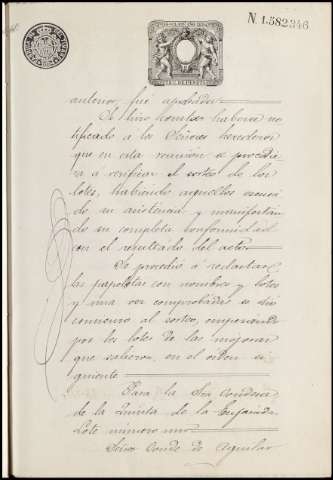 N. 1.582,346
anterior, fue aprobada
Se hizo constar haberse no
tificado a los Señores herederos
que en esta reunión se procedi
a a verificar el sorteo de los
lotes, habiendo aquellos
de su asistencia y manifestan
do su completa conformidad
con el resultado del acto
Se procedió á redactar
las papeletas con nombres y lotes
y una vez comprobadas se dio
comienzo al sorteo, empezando
por los lotes de las mejoras
que salieron, en el orden si
guiente
Para la Sra Condesa
de la Quinta de la Enjarada
Lote número uno
Señor Conde de Aguilar